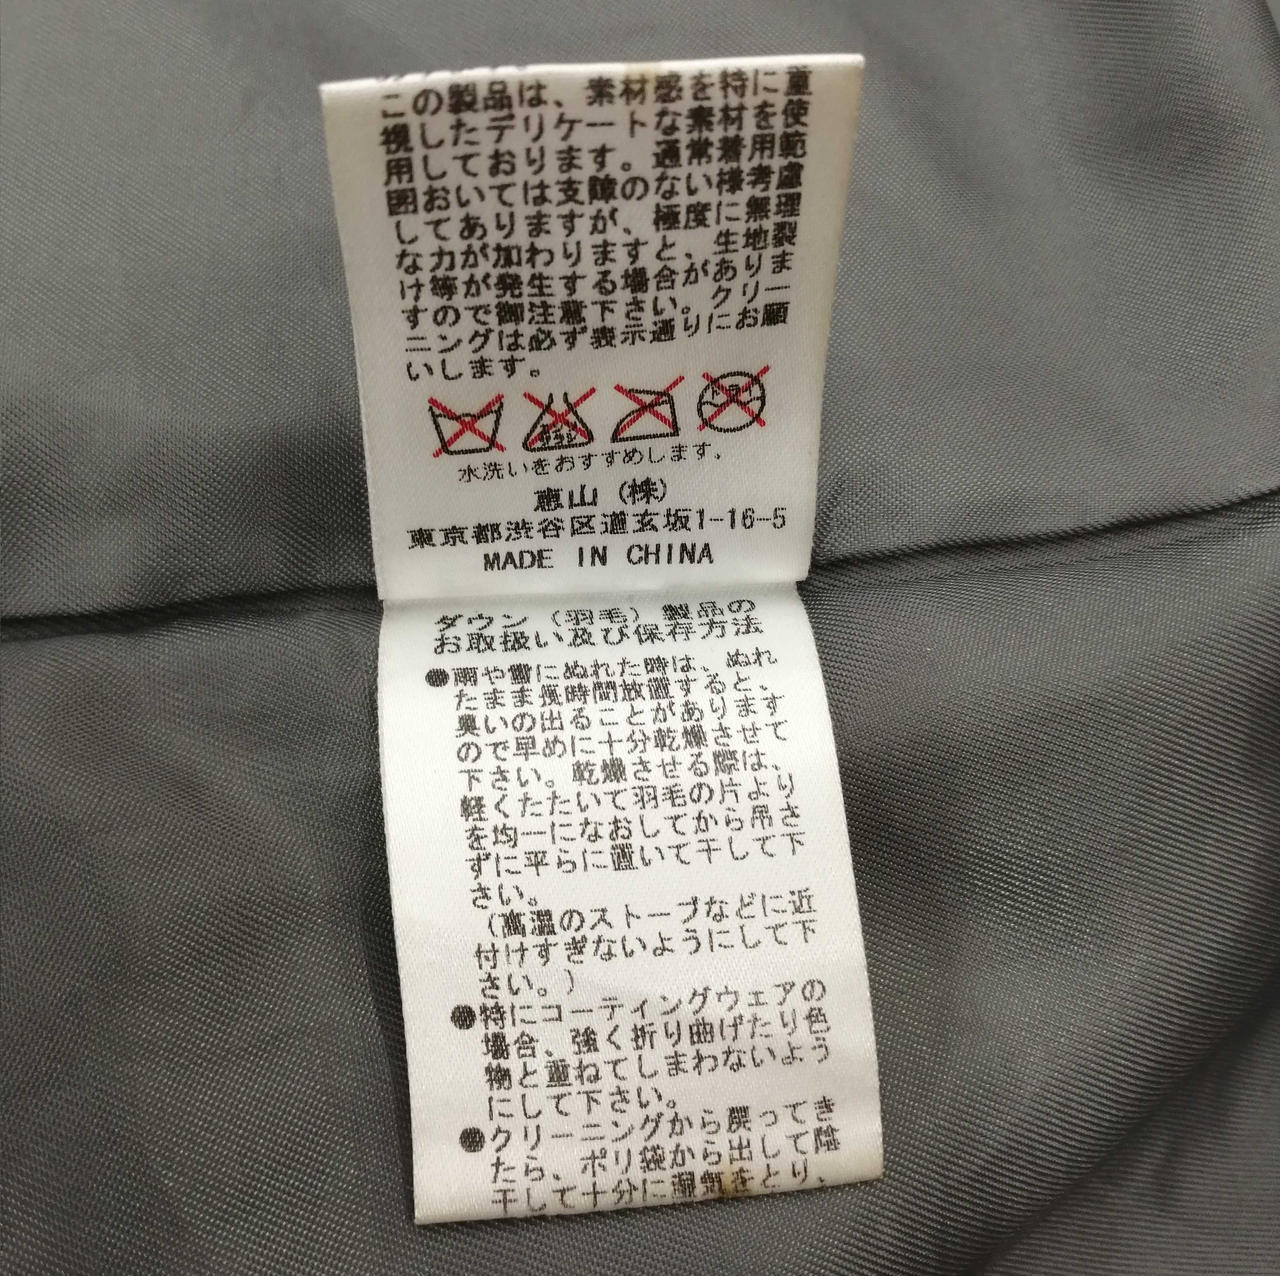 この製品は、素材感を特に重
視したデリケートな素材を使
用しております。通常着用範
囲おいては支障のない様考慮
してありますが、極度に無理
な力が加わりますと、生地裂
け等が発生する場合がありま
すので御注意下さい。クリー
ニングは必ず表示通りにお願
いします。
水洗いをおすすめします。
恵山(株)
東京都渋谷区道玄坂1-16-5
MADE IN CHINA
ダウン(羽毛)製品の
お取扱い及び保存方法
●雨や雪にぬれた時は、ぬれ
たまま長時間放置すると、
臭いの出ることがあります
ので早めに十分乾燥させて
下さい。乾燥させる際は、
軽くたたいて羽毛の片より
を均一になおしてから吊さ
ずに平らに置いて干して下
さい。
(高温のストーブなどに近
付けすぎないようにして下
さい。)
●特にコーティングウェアの
場合、強く折り曲げたり色
物と重ねてしまわないよう
にして下さい。
●クリーニングから戻ってき
たら、ポリ袋から出して陰
干しして十分に湿気をとり、